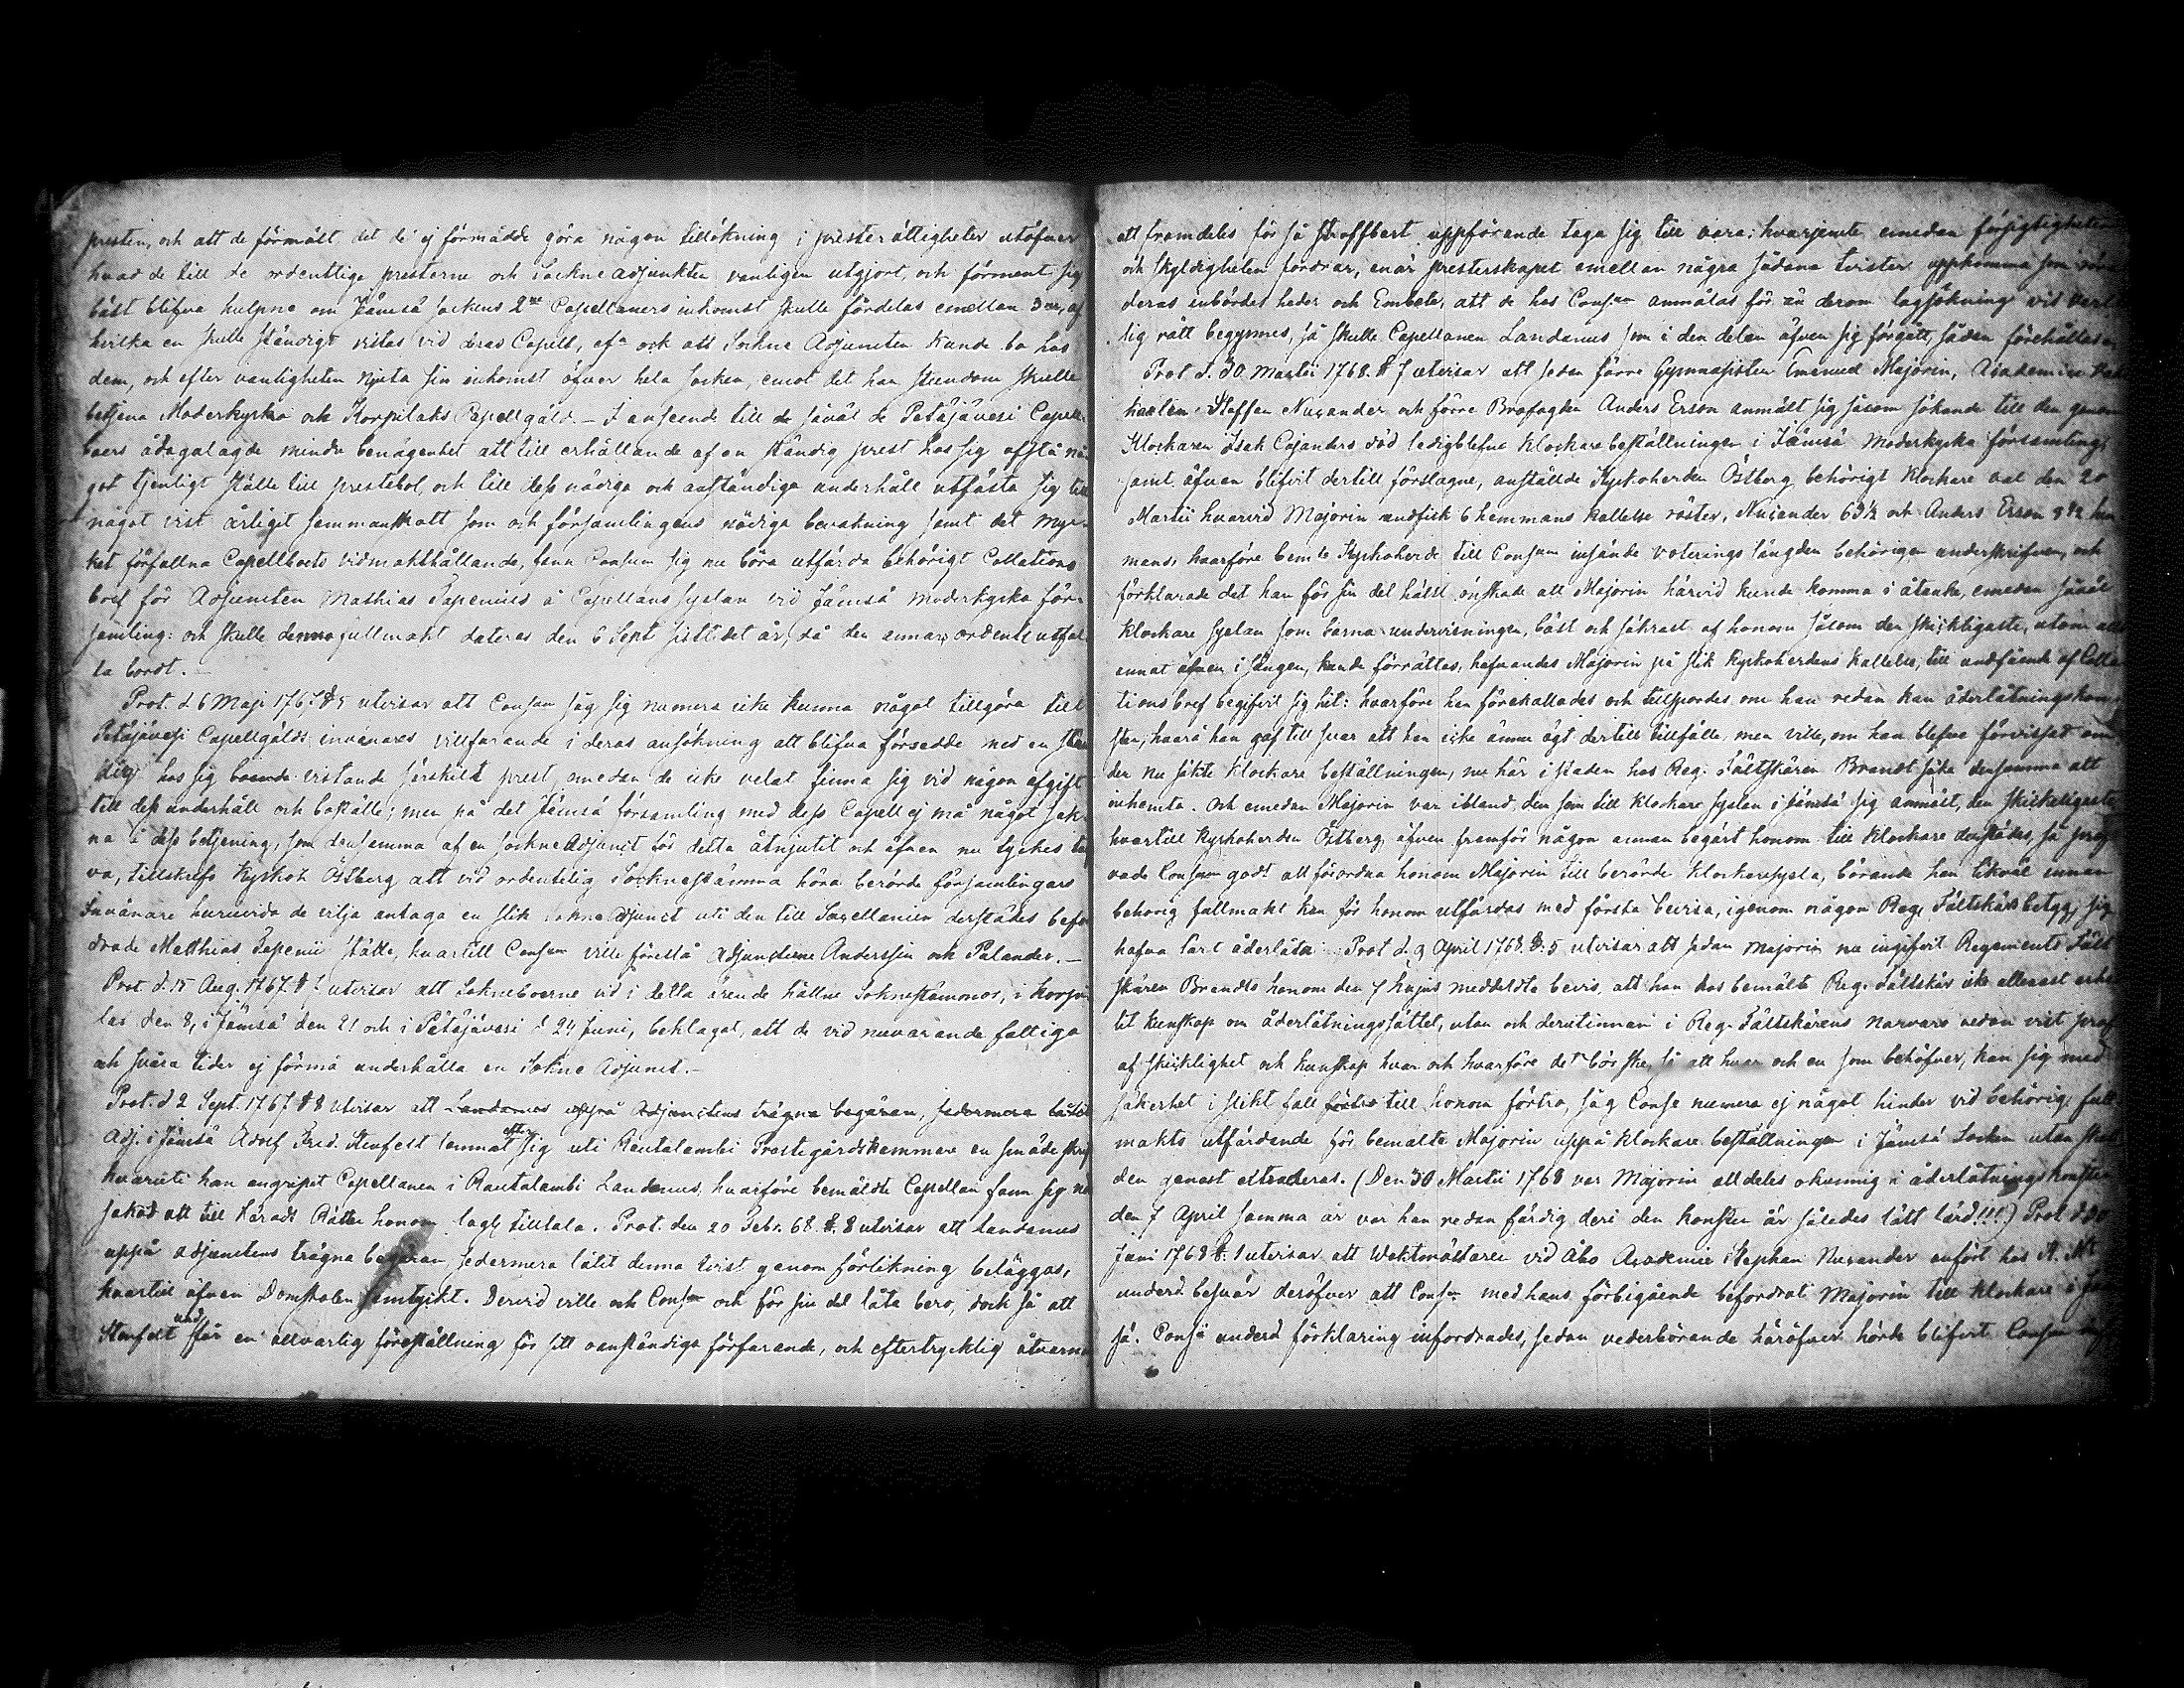 presten, och att de förmält det de ej förmådde göra någon tillökning i presterättigheter utöfver
hvad de till de ordenttlige presterne och Sockneadjunkten vanligen utgjort, och förment sig
bäst blifva hulpne om Jämsä sockens 2ne Capellaners inkomst skulle fördelas emellan 3ne, af
hvilka en skulle ständigt vistas vid deras Capell, och att Sockne Adjuncten kunde bo hos
dem, och efter vanligheten njuta sin inkomst öfver hela socken, emot det han stundom skulle
betjena Moderkyrko och Korpilaks Capellgäld. – I anseende till de såväl de Petäjävesi Capell-
boers ådagalagde mindre benägenhet att till erhållande af en ständig prest hos sig afstå nå-
got tjenligt ställe till prestebol, och till dess nödiga och anständiga underhåll utfästa sig till
något visst årligit sammanskott som och församlingens nödiga bevakning samt det myc-
ket förfallna Capellbols vidmakthållande, fann Consum sig nu böra utfärda behörigt Collations
bref för Adjuncten Mathias Tapenius å Capellans syslan vid Jämsä moderkyrko för-
samling: och skulle denna fullmakt dateras den 6 Sept sistl. det år, då den annars ordentl. utfal-
la bordt. –
Prot. d. 6 Maji 1767 § 5 utvisar att Consum såg sig numera icke kunna något tillgöra till
Petäjävesi Capellgälds invånares villfarande i deras ansökning att blifva försedde med en stän-
dig hos sig boende vistande särskild prest, emedan de icke velat finna sig vid någon afgift
till dess underhåll och boställe; men på det Jämsä församling med dess Capell ej må något sak-
na i dess betjening, som densamma af en sockneadjunct för detta åtnjutit och äfven nu tyckes
va, tillskrefs Kyrkoh Östberg att vid ordentelig Socknestämma höra berörde församlingars
Invånare huruvida de vilja antaga en slik sokneadjunct uti den till Sacellanien derstädes befor-
drade Matthias Tapenii ställe, hvartill Consum ville föreslå adjuncterne Anderssin och Palander. –
Prot. d. 15 Aug. 1767 § 1 utvisar att Sokneboerne vid i detta ärende hållne Soknestämmor, i Korpi-
lax den 8, i Jämsä den 21 och i Petäjävesi d 24 Juni, beklagat, att de vid nuvarande fattiga
och svåra tider ej förmå underhålla en Sokne Adjunct. –
Prot. d 2 Sept. 1767 § 8 utvisar att Landanus uppå Adjunctens trägna begäran, sedermera
Adj. i Jämsä Adolf Fred. Stenfelt lemnat efter sig uti Rautalambi Prestegårdskammare en smädeskrif
hvaruti han angripit Capellanen i Rautalambi Landanus, hvarföre bemälde Capellan fann sig
sakad att till Härads Rätten honom lagl. tilltala. Prot. den 20 Febr. 68. §. 8 utvisar att Landanus
uppå adjunctens trägna begäran sedermera låtit denna tvist genom förlikning biläggas,
hvartill äfven Domstolen samtyckt. Dervid ville och Consum och för sin del låta bero, dock så att
Stenfelt und får en allvarlig föreställning för sitt oanständiga förfarande, och eftertrycklig åtvarn
att framdeles för så straffbart uppförande taga sig till vara: hvarjemte emedan försigtigheten
och skyldigheten fordrar, enär presterskapet emellan några sådana tvister uppkomma som röra
deras inbördes heder och Embete, att de hos Consum anmälas för än derom lagsökning vid verl-
dslig rätt begynnes, så skulle Capellanen Landanus som i den delen äfven sig förgått, sådan förehållas
Prot d. 30 Martii 1768. § 7 utvisar att sedan förre Gymnasisten Emanuel Majorin, Academiae
Staffan Nucander och förre Brofogden Anders Erson anmält sig såsom sökande till den genom
Klockaren Isak Cajanders död ledigblefne klockarebeställningen i Jämsä moderkyrko församling,
samt äfven blifvit dertill föreslagne, anställde Kyrkoherden Östberg behörigt klockare val den 20
Martii hvarvid Majorin undfick 6 hemmans kallelse röster, Nucander 63 1/2 och Anders Erson 8 1/2 hem
mans, hvarföre bemte Kyrkoherde till Consum insände voterings längden behörigen underskrifven, och
förklarade det han för sin del hälst önskade att Majorin härvid kunde komma i åtanke, emedan såväl
klockare syslan som barna undervisningen, bäst och säkrast af honom såsom den skickligaste, utom allt
annat äfven i sången, kunde förrättas, hafvandes Majorin på slik Kyrkoherdens kallelse, till undfående af Colla
tions bref begifvit sig hit: hvarföre han förekallades och tillspordes om han redan kan åderlåtningskon-
sten, hvarå han gaf till svar att han icke ännu ägt dertill tillfälle, men ville, om han blefve förvissad om
den nu sökte klockare beställningen, nu här i staden hos Reg. Fältskären Brandt söka densamma att
inhemta. Och emedan Majorin var ibland den som till klockare syslan i Jämsä sig anmält, den skickeligaste
hvartill Kyrkoherden Östberg, äfven framför någon annan begärt honom till klockare derstädes, så pröf
vade Consum godt att förordna honom Majorin till berörde klockaresysla, börande han likväl innan
behörig fullmakt kan för honom utfärdas med första bevisa, igenom någon Regs Fältskärs betyg, sig
hafva lärt åderlåta. Prot d. 9 April 1768. §. 5 utvisar att sedan Majorin nu ingifvit Regiments Fält
skären Brandts honom den 7 hujus meddeldte bevis, att han hos bemälte Reg. Fältskär icke allenast erhål
lit kunskap om åderlåtningssättet, utan och derutinnan i Reg. Fältskärens närvaro redan vist prof
af skicklighet och kunskap hvar och hvarföre det bör ske, så att hvar och en som behöfver, kan sig med
säkerhet i slikt fall förtro till honom förtro, såg Conse numera ej något hinder vid behörig full
makts utfärdande för bemälte Majorin uppå klockare beställningen i Jämsä Socken utan skall
den genast extraderas. (Den 30 Martii 1768 var Majorin alldeles okunnig i åderlåtningskonsten
den 7 April samma år var han redan färdig deri den konsten är således lätt lärd!!!) Prot d. 20
Juni 1768 §. 1 utvisar att Waktmästaren vid Åbo Academie Stephan Nucander anfört hos K. Mt
underd. besvär deröfver att Consum med hans förbigående befordrat Majorin till klockare i Jäm
sä. Consii underd. förklaring infordrades, sedan vederbörande häröfver hörde blifvit. Consum